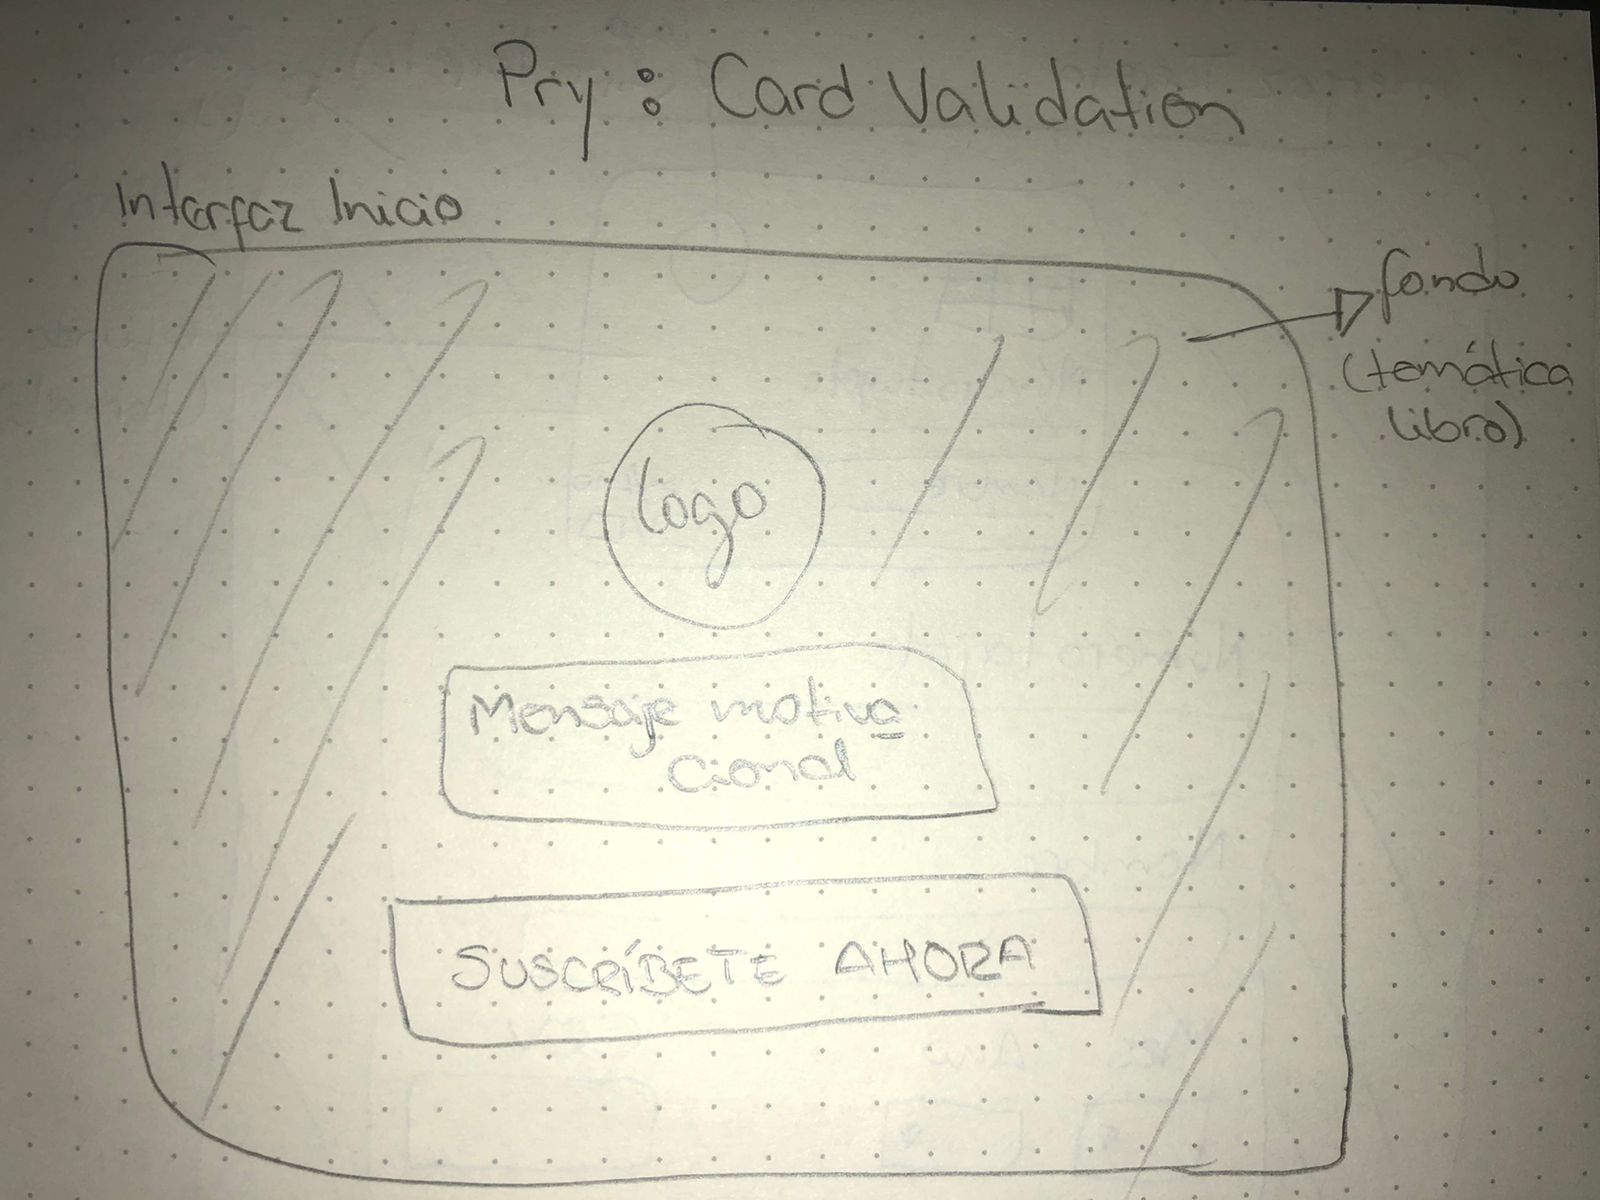 Pry : Card Validation
Interfaz Inicio
fondo
(temática
libro)
logo
Mensaje motiva
cional
SUSCRÍBETE AHORA